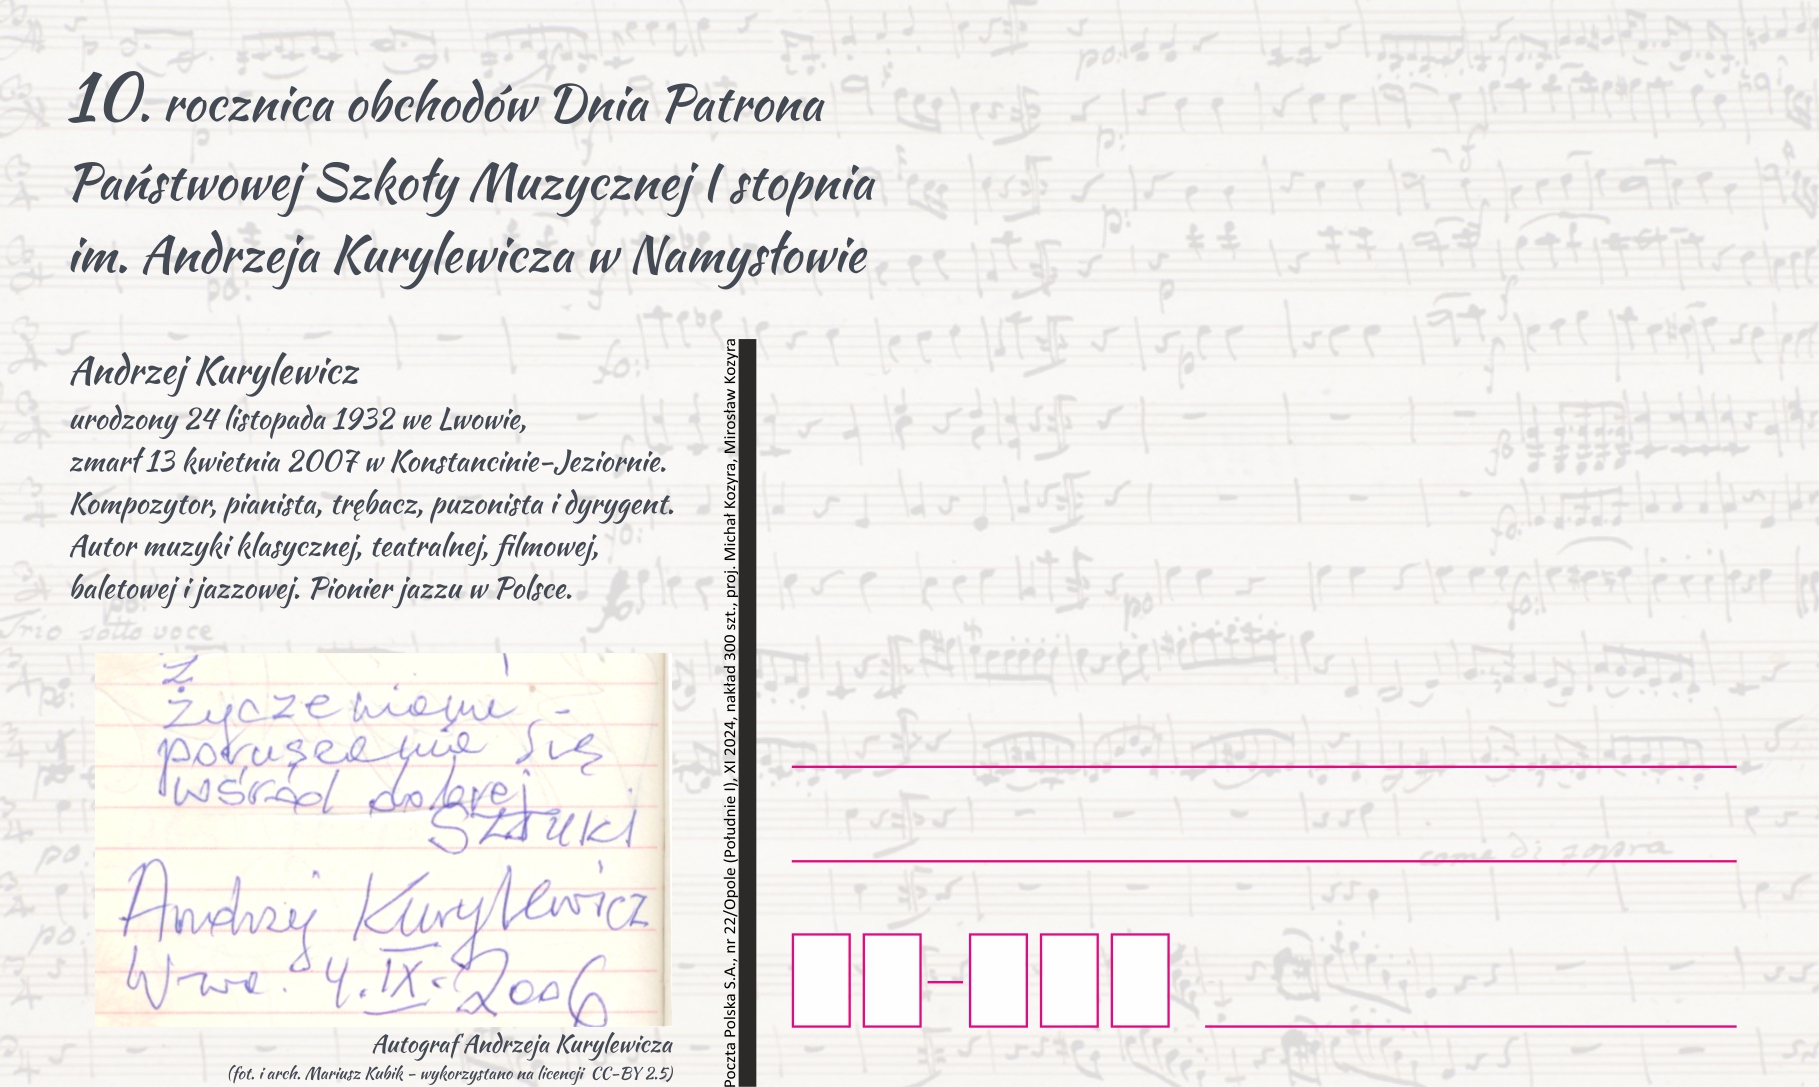 10. rocznica obchodów Dnia Patrona
Państwowej Szkoły Muzycznej I stopnia
im. Andrzeja Kurylewicza w Namysłowie
Andrzej Kurylewicz
urodzony 24 listopada 1932 we Lwowie,
zmarł 13 kwietnia 2007 w Konstancinie-Jeziornie.
Kompozytor, pianista, trębacz, puzonista i dyrygent.
Autor muzyki klasycznej, teatralnej, filmowej,
baletowej i jazzowej. Pionier jazzu w Polsce.
Trio sotto voce
z
życzeniami -
poruszania się
wśród dobrej
Sztuki
Andrzej Kurylewicz
W-wa. 4.IX.2006
Autograf Andrzeja Kurylewicza
(fot. i arch. Mariusz Kubik – wykorzystano na licencji CC-BY 2.5)
Poczta Polska S.A., nr 22/Opole (Południe I), XI 2024, nakład 300 szt., proj. Michał Kozyra, Mirosław Kozyra
come di sopra